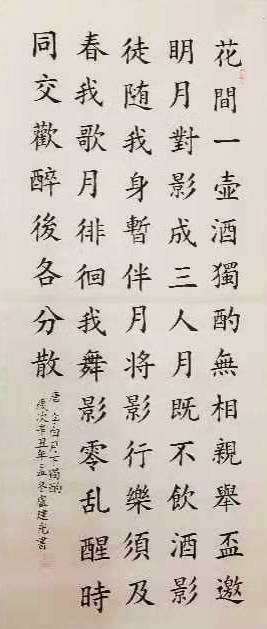 花間一壺酒獨酌無相親舉盃邀
明月對影成三人月既不飲酒影
徒随我身暫伴月将影行樂須及
春我歌月徘徊我舞影零乱醒時
同交歡醉後各分散
唐李白月下獨酌
歲次辛丑年孟冬盧建光書